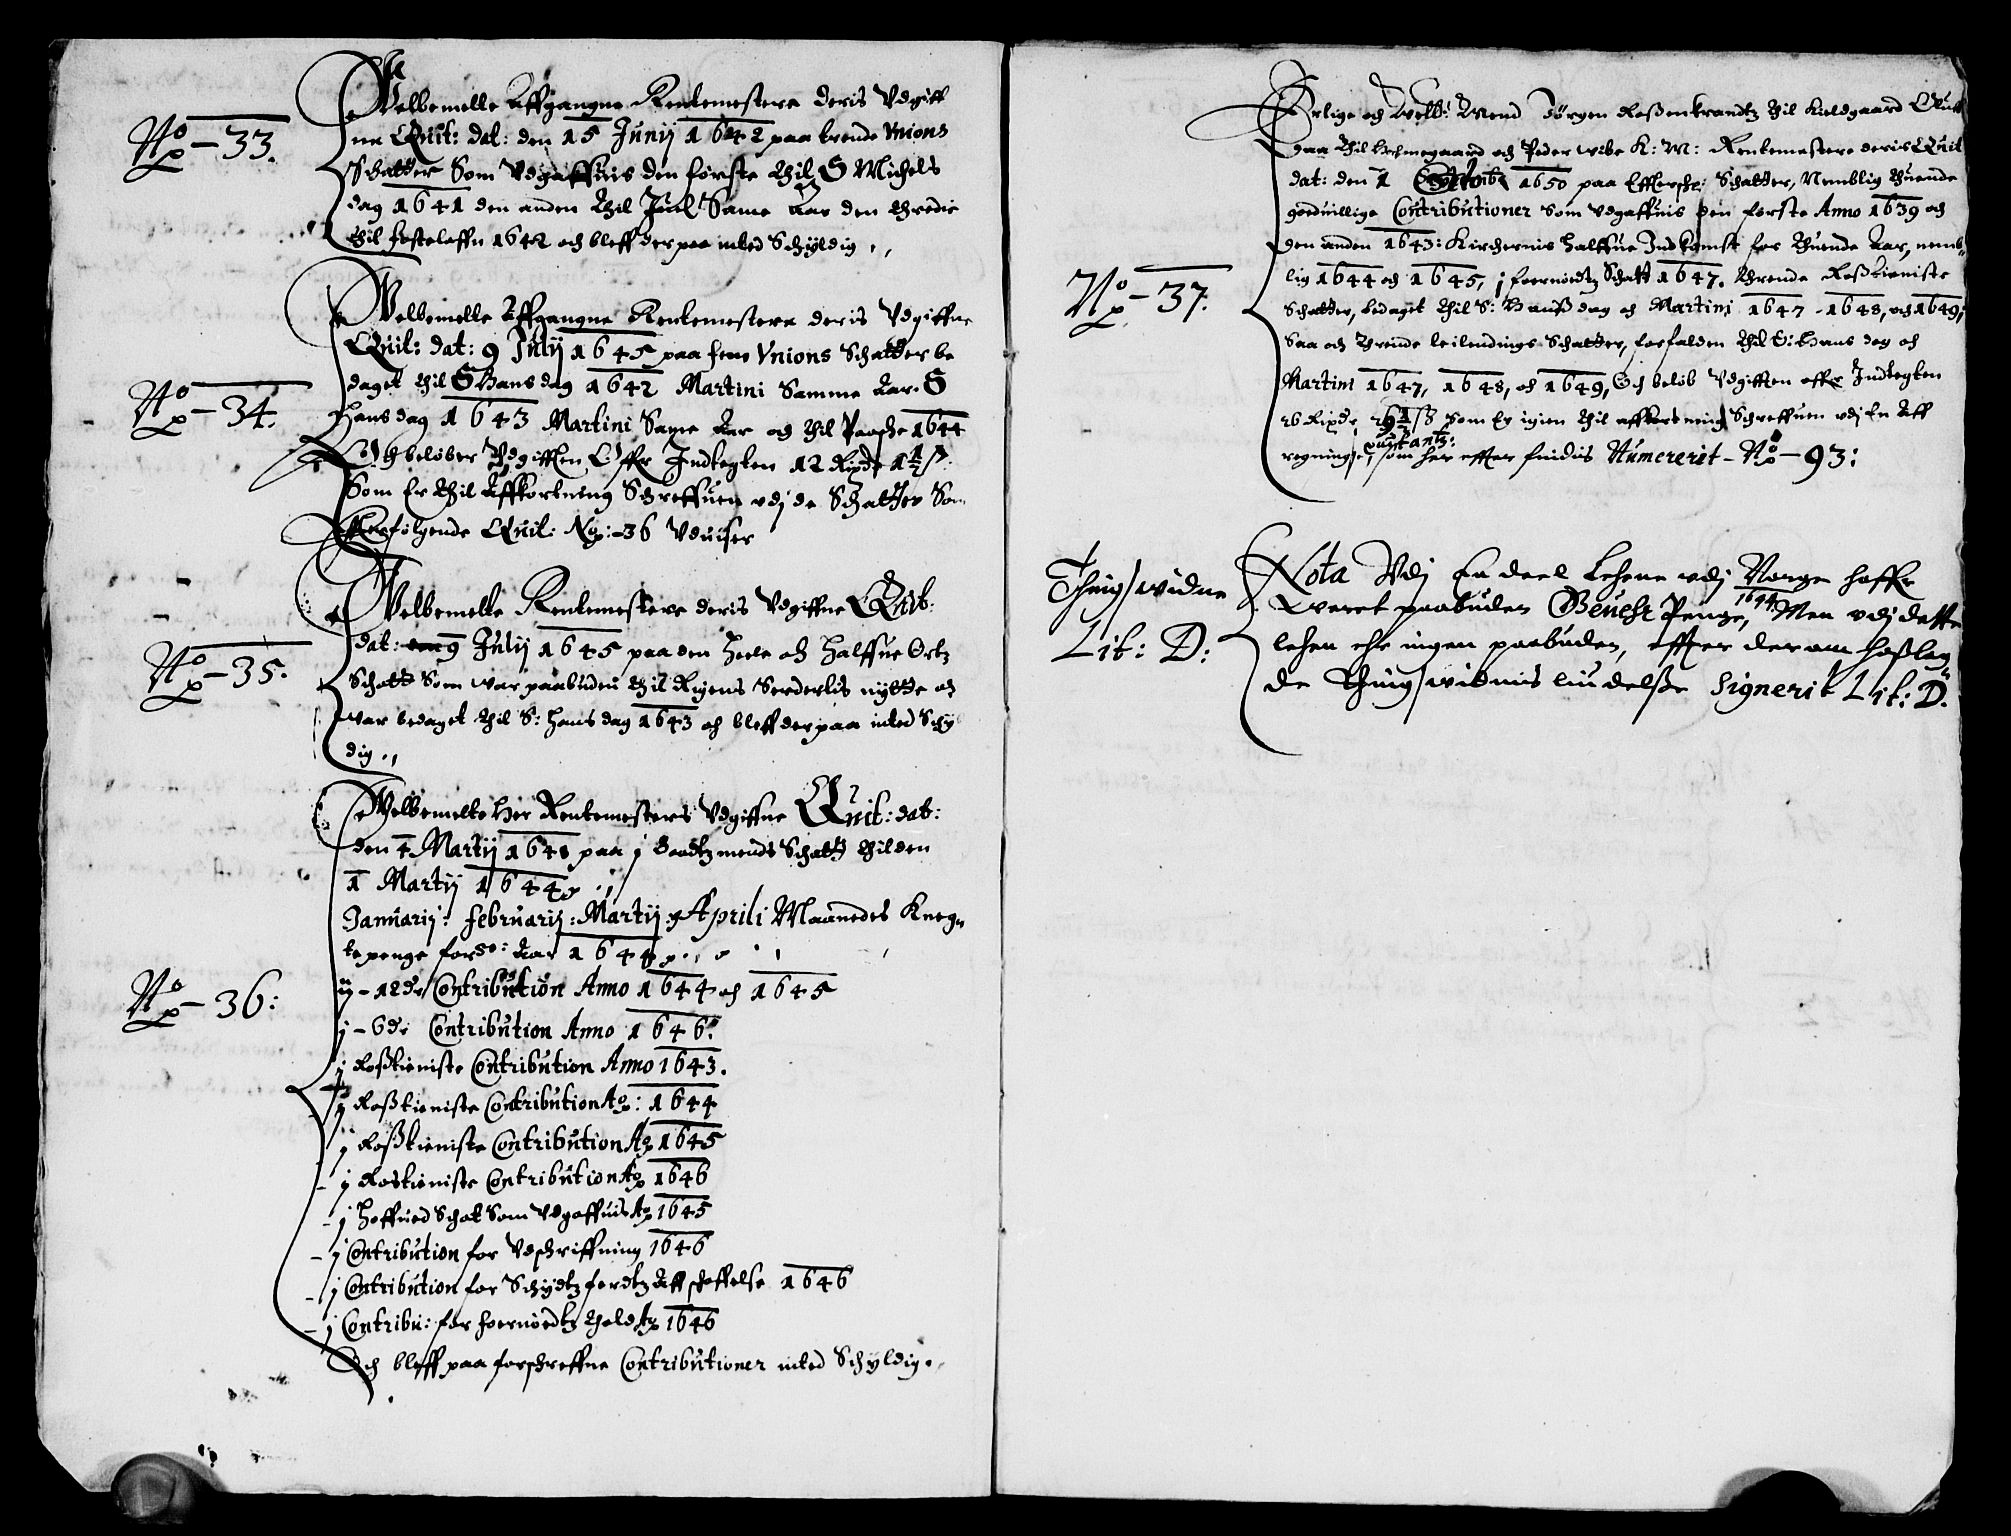 Welbemelte Affgangne Rentemestere deris Udgiff
No - 33. ne Quit: dat: den 15 Junij 1642 paa trende Unions
Schatter Som Udgaffuis den første thil S Michels
dag 1641 den anden thil Juul Same Aar den thredie
thil fasteleffn 1642 och bleff der paa inted Schyldig
Welbemelte Affgangne Rentemestere deris Udgiffne
Quit: dat: 9 Julij 1645 paa fem Unions Schatter be
No - 34. daget thil S Hans dag 1642 Martini Samme Aar S
Hans dag 1643 Martini Same Aar och thil Paasche 1644
Och beløber Udgifften Offr Indtegten 12 Rixdr 1½ ß
Som Er thil Affkortning Schreffuen udj de Schatter Som
Effterfølgende Quit: No: 36 Uduiser
Welbemelte Rentemestere deris Udgiffne Quit:
dat: 9 Julij 1645 paa den heele och halffue Ortz
No - 35. Schatt Som war paabuden thil Rigens Serderlis nytte och
war bedaget thil S: Hans dag 1643 och bleff der paa inted Schyl
dig
Welbemelte Her Rentemesters Udgiffne Quit: dat:
den 4 Martij 1648 paa j Baadtzmends Schatt thil den
1 Martij 1644
Januarij: Februarij: Martij: Aprili Maanedes Kneg
te penge for do: Aar 1644
No - 36: ij - 12de Contribution Anno 1644 och 1645
j - 6de Contribution Anno 1646
j Roßtieniste Contribution Anno 1643.
j Roßtieniste Contribution Ao: 1644
j Roßtieniste Contribution Ao 1645
j Rostieniste Contribution Ao 1646
j Hoffued Schat Som Udgaffuis Ao 1645
j Contribution for Udschriffning 1646
j Contribution for Schydtzferdtz Affscheffelse 1646
j Contribu: for foernødtz hold Ao 1646
Och bleff paa forschreffne Contributioner inted Schyldig
Erlige och Welb: Mend Jørgen Roßenkrandtz thil Kieldgaard
paa thil och Peder Wibe K: M: Rentemestere deris Quit
dat: den 1 Septemb: 1650 paa Efftersch: Schatter, Nemblig thuende
goduillige Contributioner Som Udgaffuis den første Anno 1639 och
den anden 1643: Kirchernis halffue Indkomst for thuende Aar, nemb
No - 37. lig 1644 och 1645, j foernødtz Schatt 1647. thrende Roßtieniste
Schatter, bedaget thil S: Hanß dag och Martini 1647 - 1648, och 1649,
Saa och thrende leilendings Schatter, forfalden thil S: Hans dag och
Martini 1647, 1648, och 1649, Och beløb Udgifften offr Indtegten
26 Rixdr 29½ ß Som Er igien thil affkortning Schreffuen udj En Aff
regnings quitantz: som her effter findis Numererit - No - 93:
Thingswidne Nota Udj En deel Lehene udj Norge haffr
weret paabuden Gevehr Penge, 1644. Men udj dette
Lit: D: lehen ehr ingen paabuden, effter der om hoßlag
de thingswidnis liudelße Signerit Lit: D.